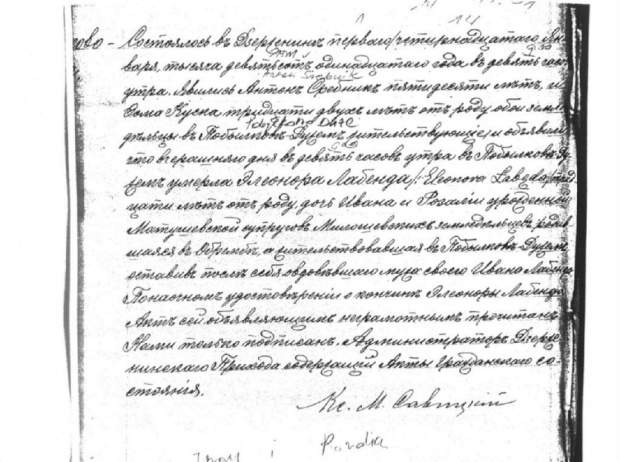 Состоялось въ Дзержениѣ перваго /четырнадцатаго/ Ян-
варя, тысяча девятьсотъ одинадцатаго года въ девять час.
утра. Явились Антонъ Средникъ пятидесяти лѣтъ, и
Сома Куска тридцати двухъ лѣтъ отъ роду оба земле-
дѣльцы въ Побылковѣ-Дужемъ жительствующіе, и объявили
что вчерашняго дня въ девять часовъ утра въ Побылковѣ Ду-
жемъ умерла Элеонора Лабенда /: Eleonora Łabęda
цати лѣтъ отъ роду, дочь Ивана и Розаліи урожденной
Матушевской супруговъ Милошевскихъ земледѣльцевъ, роди-
вшаяся въ а жительствовавшая въ Побылковѣ-Дужемъ
оставивъ послѣ себя овдовѣвшаго мужа своего Ивана Лабенда
По наочномъ удостовѣреніи о кончинѣ Элеоноры Лабенда
Актъ сей объявляющимъ неграмотнымъ прочитанъ
Нами только подписанъ. Администраторъ Дзерже-
нинскаго Прихода содержащій Акты Гражданскаго со-
стоянія.
Кс. М. Савицкій
i Rozalia